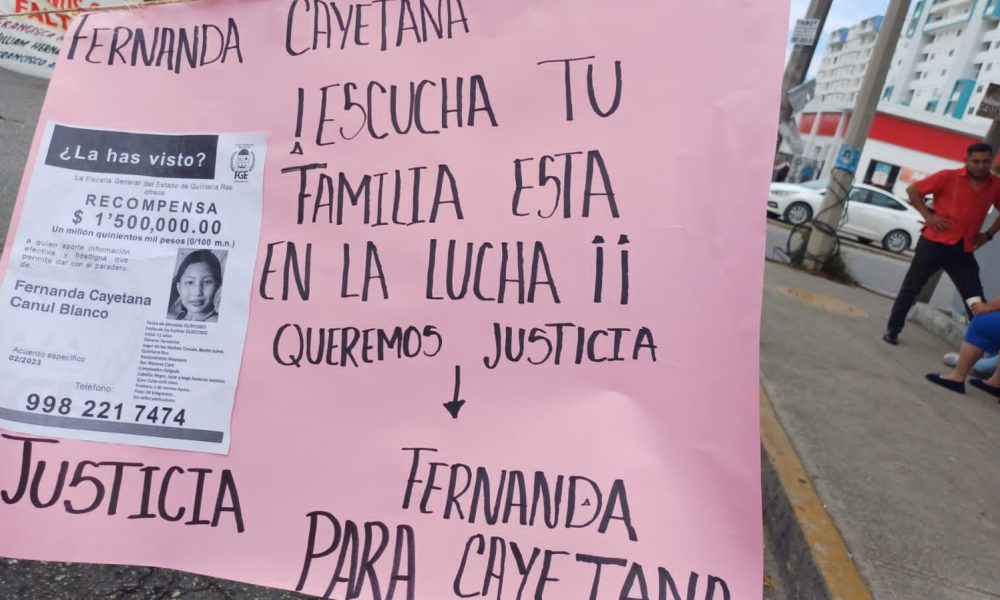 FALT
FERNANDA CAYETANA
¡ESCUCHA TU
FAMILIA ESTA
EN LA LUCHA ¡¡
QUEREMOS JUSTICIA
↓
FERNANDA
JUSTICIA
PARA CAYETANA
¿La has visto?
FGE
La Fiscalía General del Estado de Quintana Roo
ofrece
RECOMPENSA
$ 1'500,000.00
Un millón quinientos mil pesos (0/100 m.n.)
a quien aporte información
efectiva y fidedigna que
permita dar con el paradero
de
Fernanda Cayetana
Canul Blanco
Acuerdo específico
02/2023
Teléfono:
998 221 7474